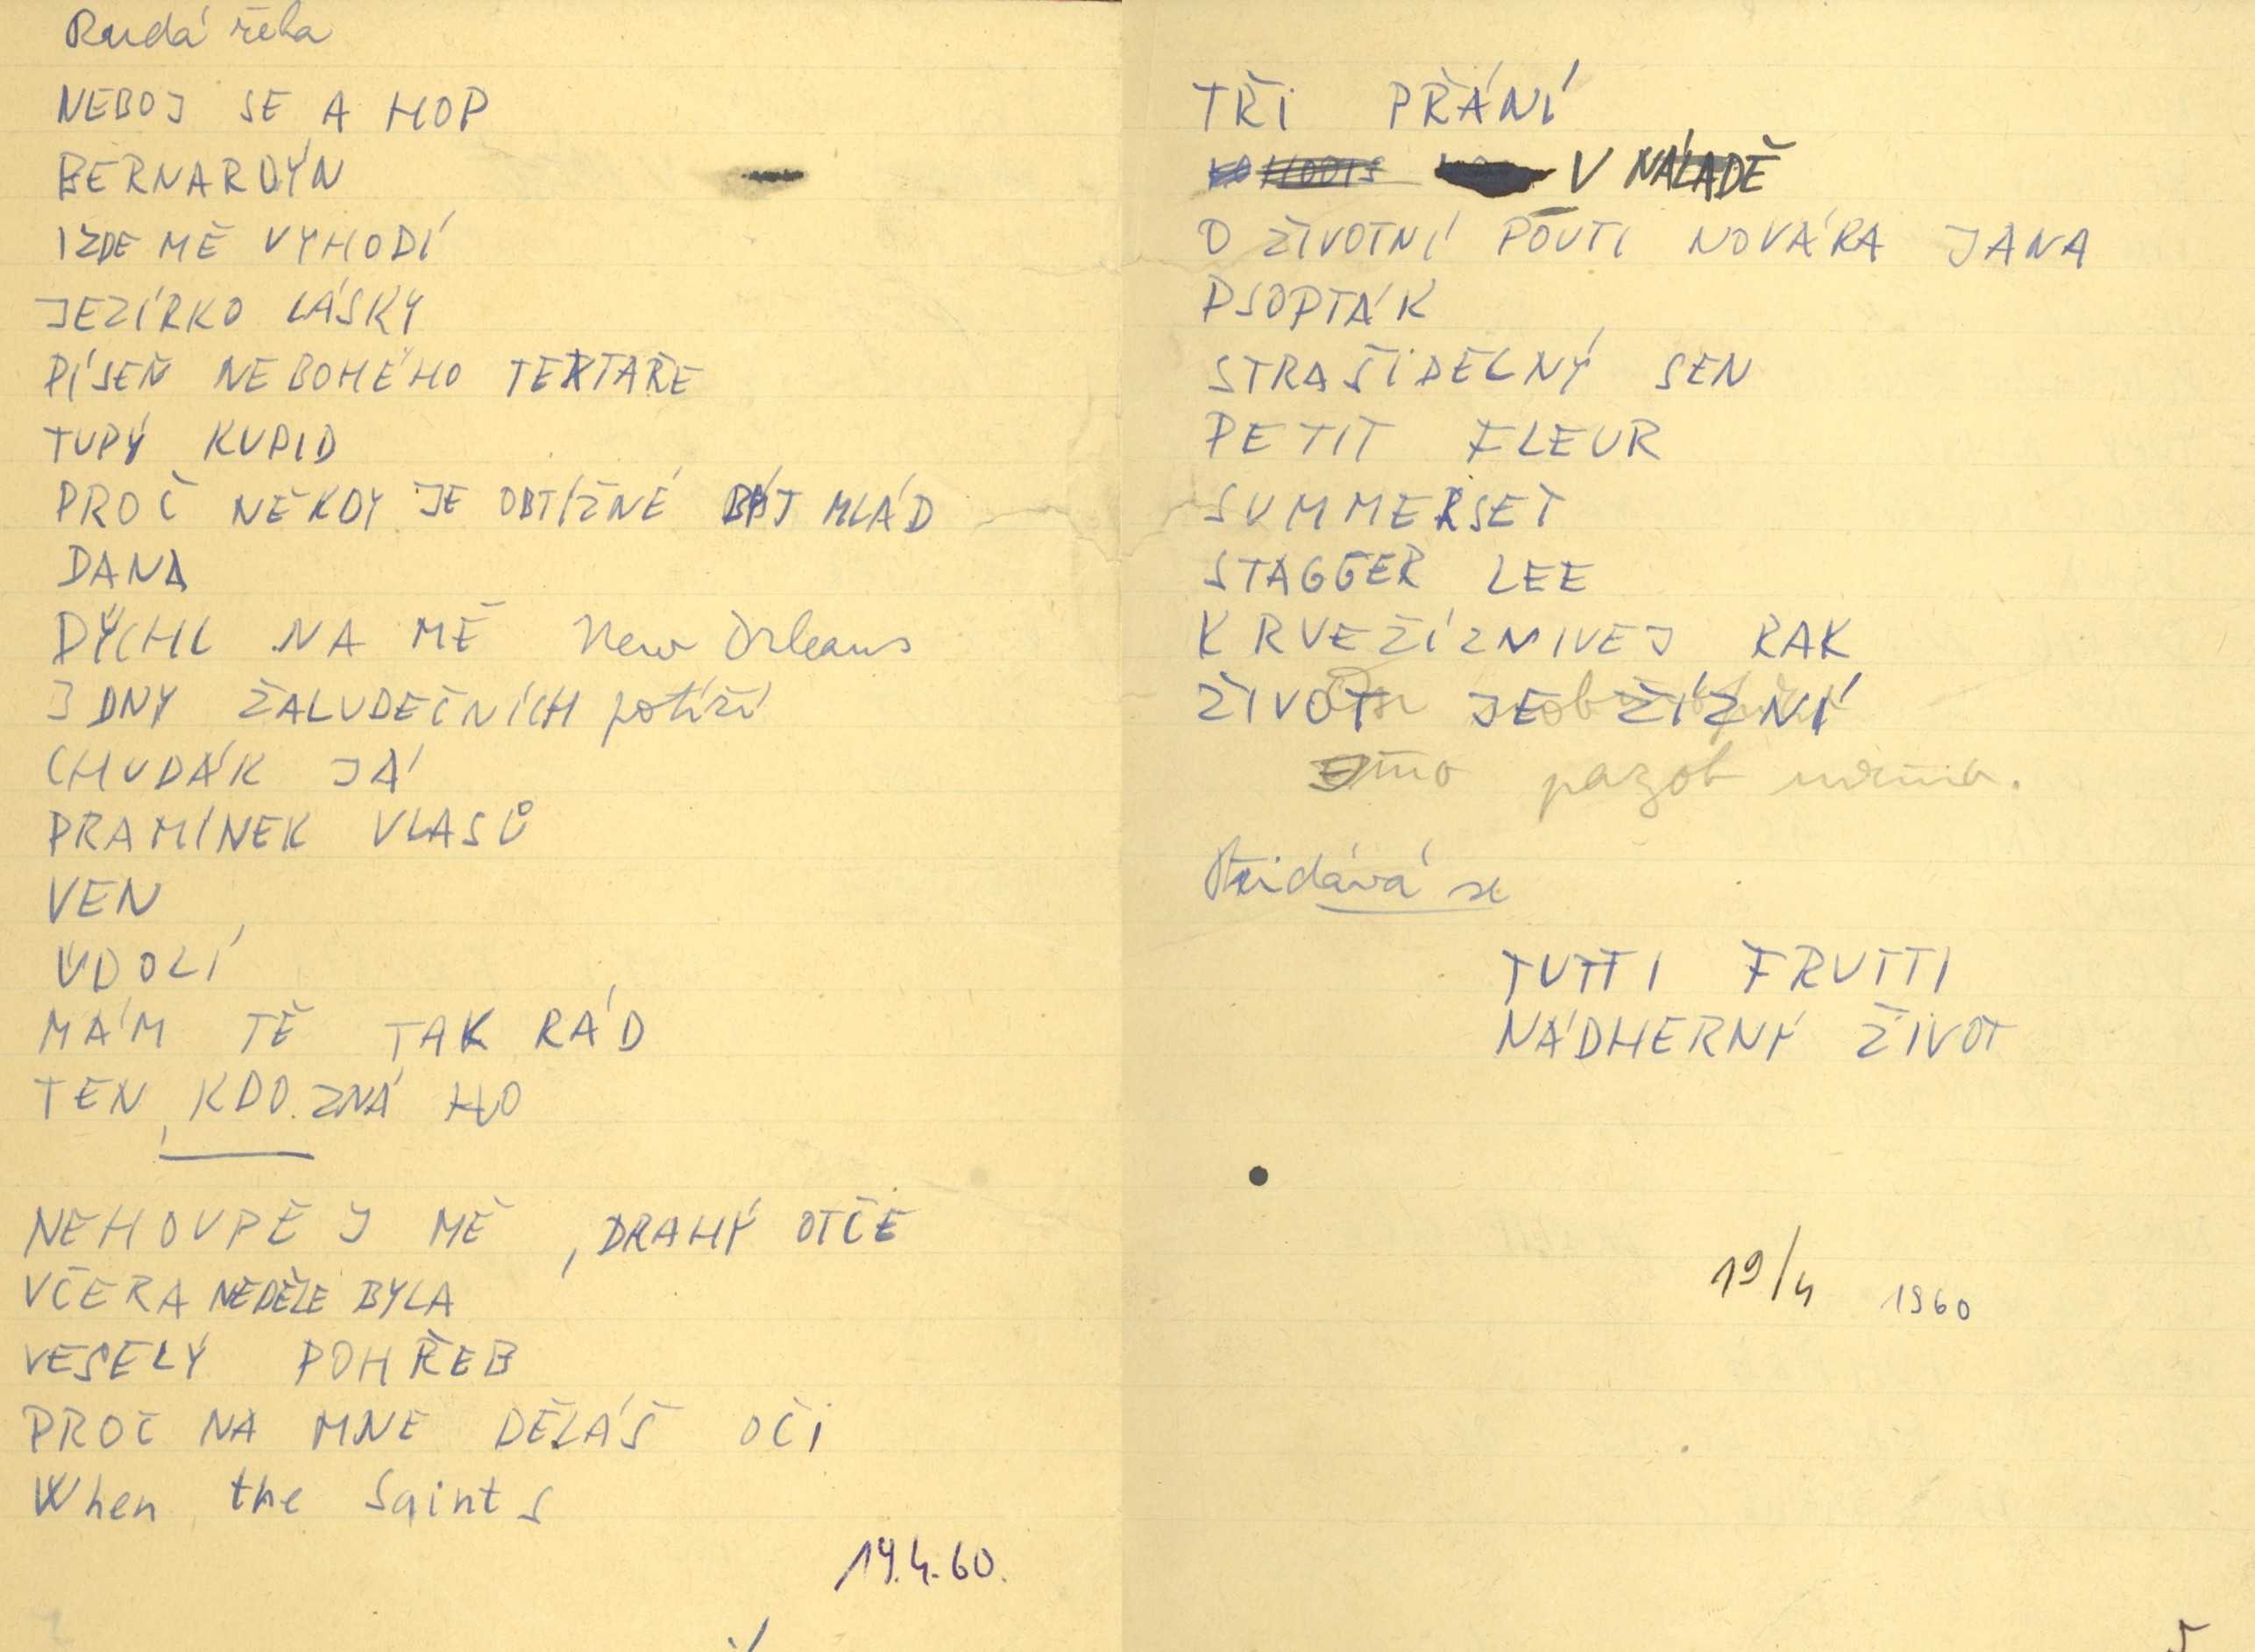 Rudá řeka
NEBOJ SE A HOP
BERNARDÝN
I ZDE MĚ VYHODÍ
JEZÍRKO LÁSKY
PÍSEŇ NEBOHÉHO TEXTAŘE
TUPÝ KUPID
PROČ NĚKDY JE OBTÍŽNÉ BÝT MLÁD
DANA
DÝCHL NA MĚ New Orleans
3 DNY ŽALUDEČNÍCH potíží
CHUDÁK JÁ
PRAMÍNEK VLASŮ
VEN
ÚDOLÍ
MÁM TĚ TAK RÁD
TEN, KDO ZNÁ HO
NEHOUPEJ MĚ, DRAHÝ OTČE
VČERA NEDĚLE BYLA
VESELÝ POHŘEB
PROČ NA MNE DĚLÁŠ OČI
When the Saints
19.4.60.
TŘI PŘÁNÍ
V NÁLADĚ
O ŽIVOTNÍ POUTI NOVÁKA JANA
PSOPTÁK
STRAŠIDELNÝ SEN
PETIT FLEUR
SUMMERSET
STAGGER LEE
KRVEŽÍZNIVEJ RAK
ŽIVOT JE ŽÍZNÍ
pazob
Přidává se
TUTTI FRUTTI
NÁDHERNÝ ŽIVOT
19/4 1960